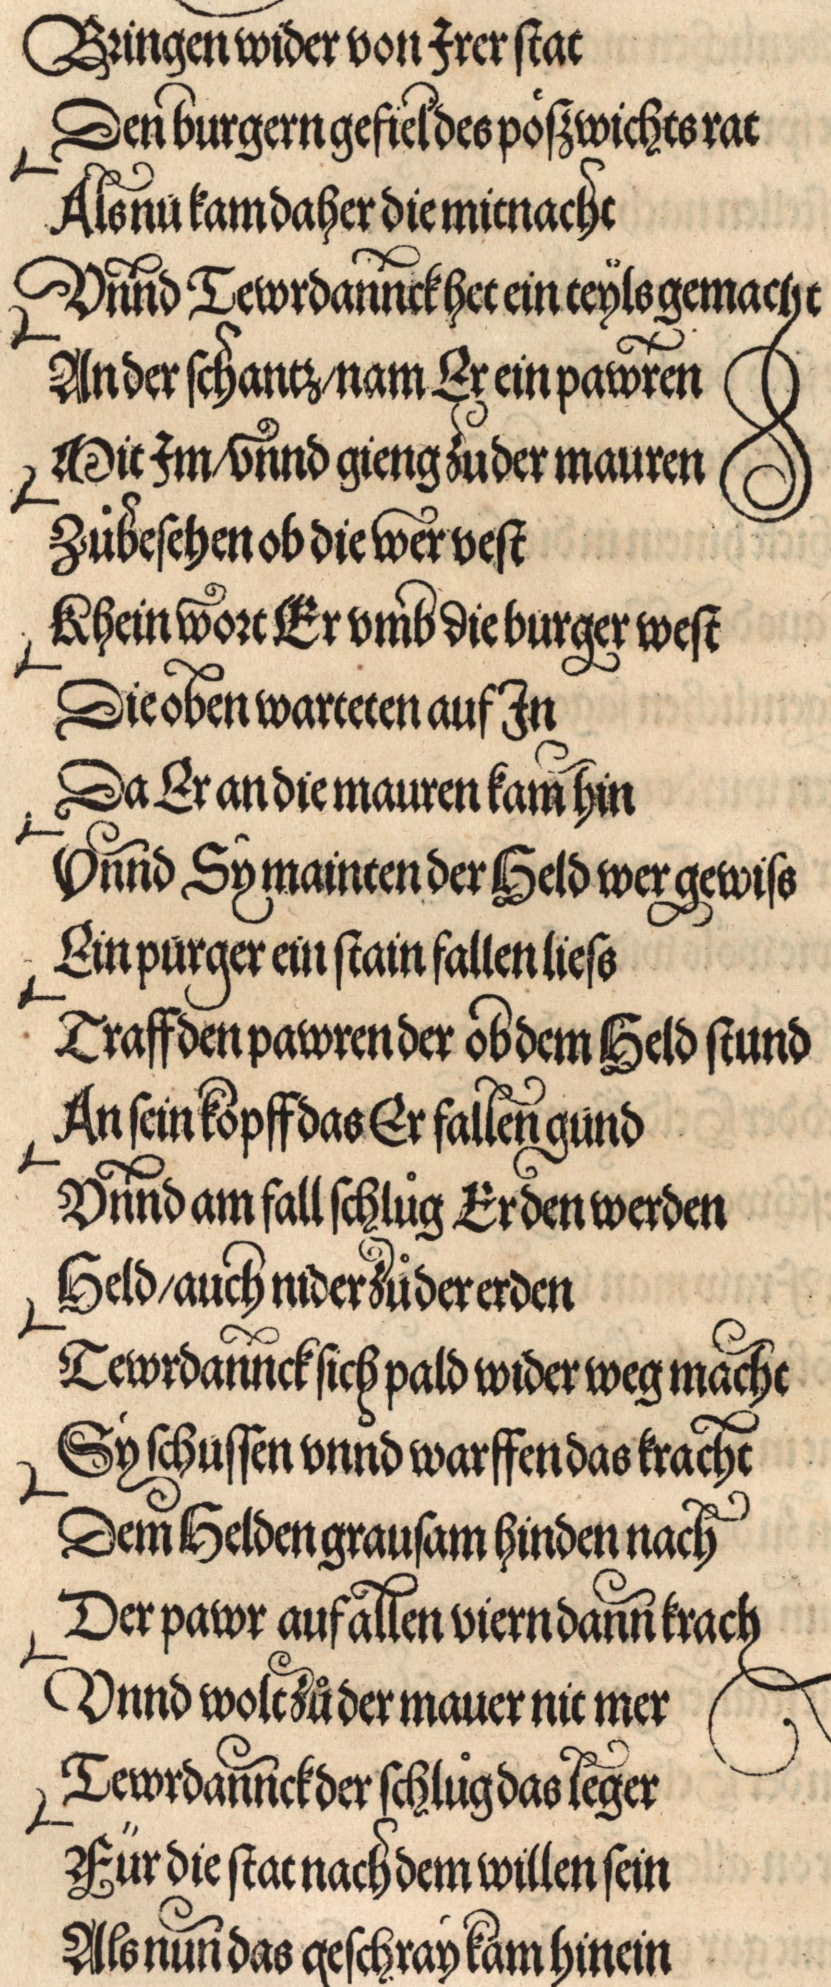 Bringen wider von Irer stat
Den burgern gefiel des pöszwichts rat
Als nu kam daher die mitnacht
Vnnd Tewrdannck het ein teyls gemacht
An der schantz/nam Er ein pawren
Mit Im/vnnd gieng zu der mauren
Zůbesehen ob die wer vest
Khein wort Er vmb die burger west
Die oben warteten auf In
Da Er an die mauren kam hin
Vnnd Sy mainten der Held wer gewiss
Ein purger ein stain fallen liess
Traff den pawren der ob dem Held stund
An sein kopff das Er fallen gund
Vnnd am fall schlůg Er den werden
Held/auch nider zů der erden
Tewrdannck sich pald wider weg macht
Sy schussen vnnd warffen das kracht
Dem Helden grausam hinden nach
Der pawr auf allen viern dann krach
Vnnd wolt zů der mauer nit mer
Tewrdannck der schlůg das leger
Für die stat nach dem willen sein
Als nun das geschray kam hinein